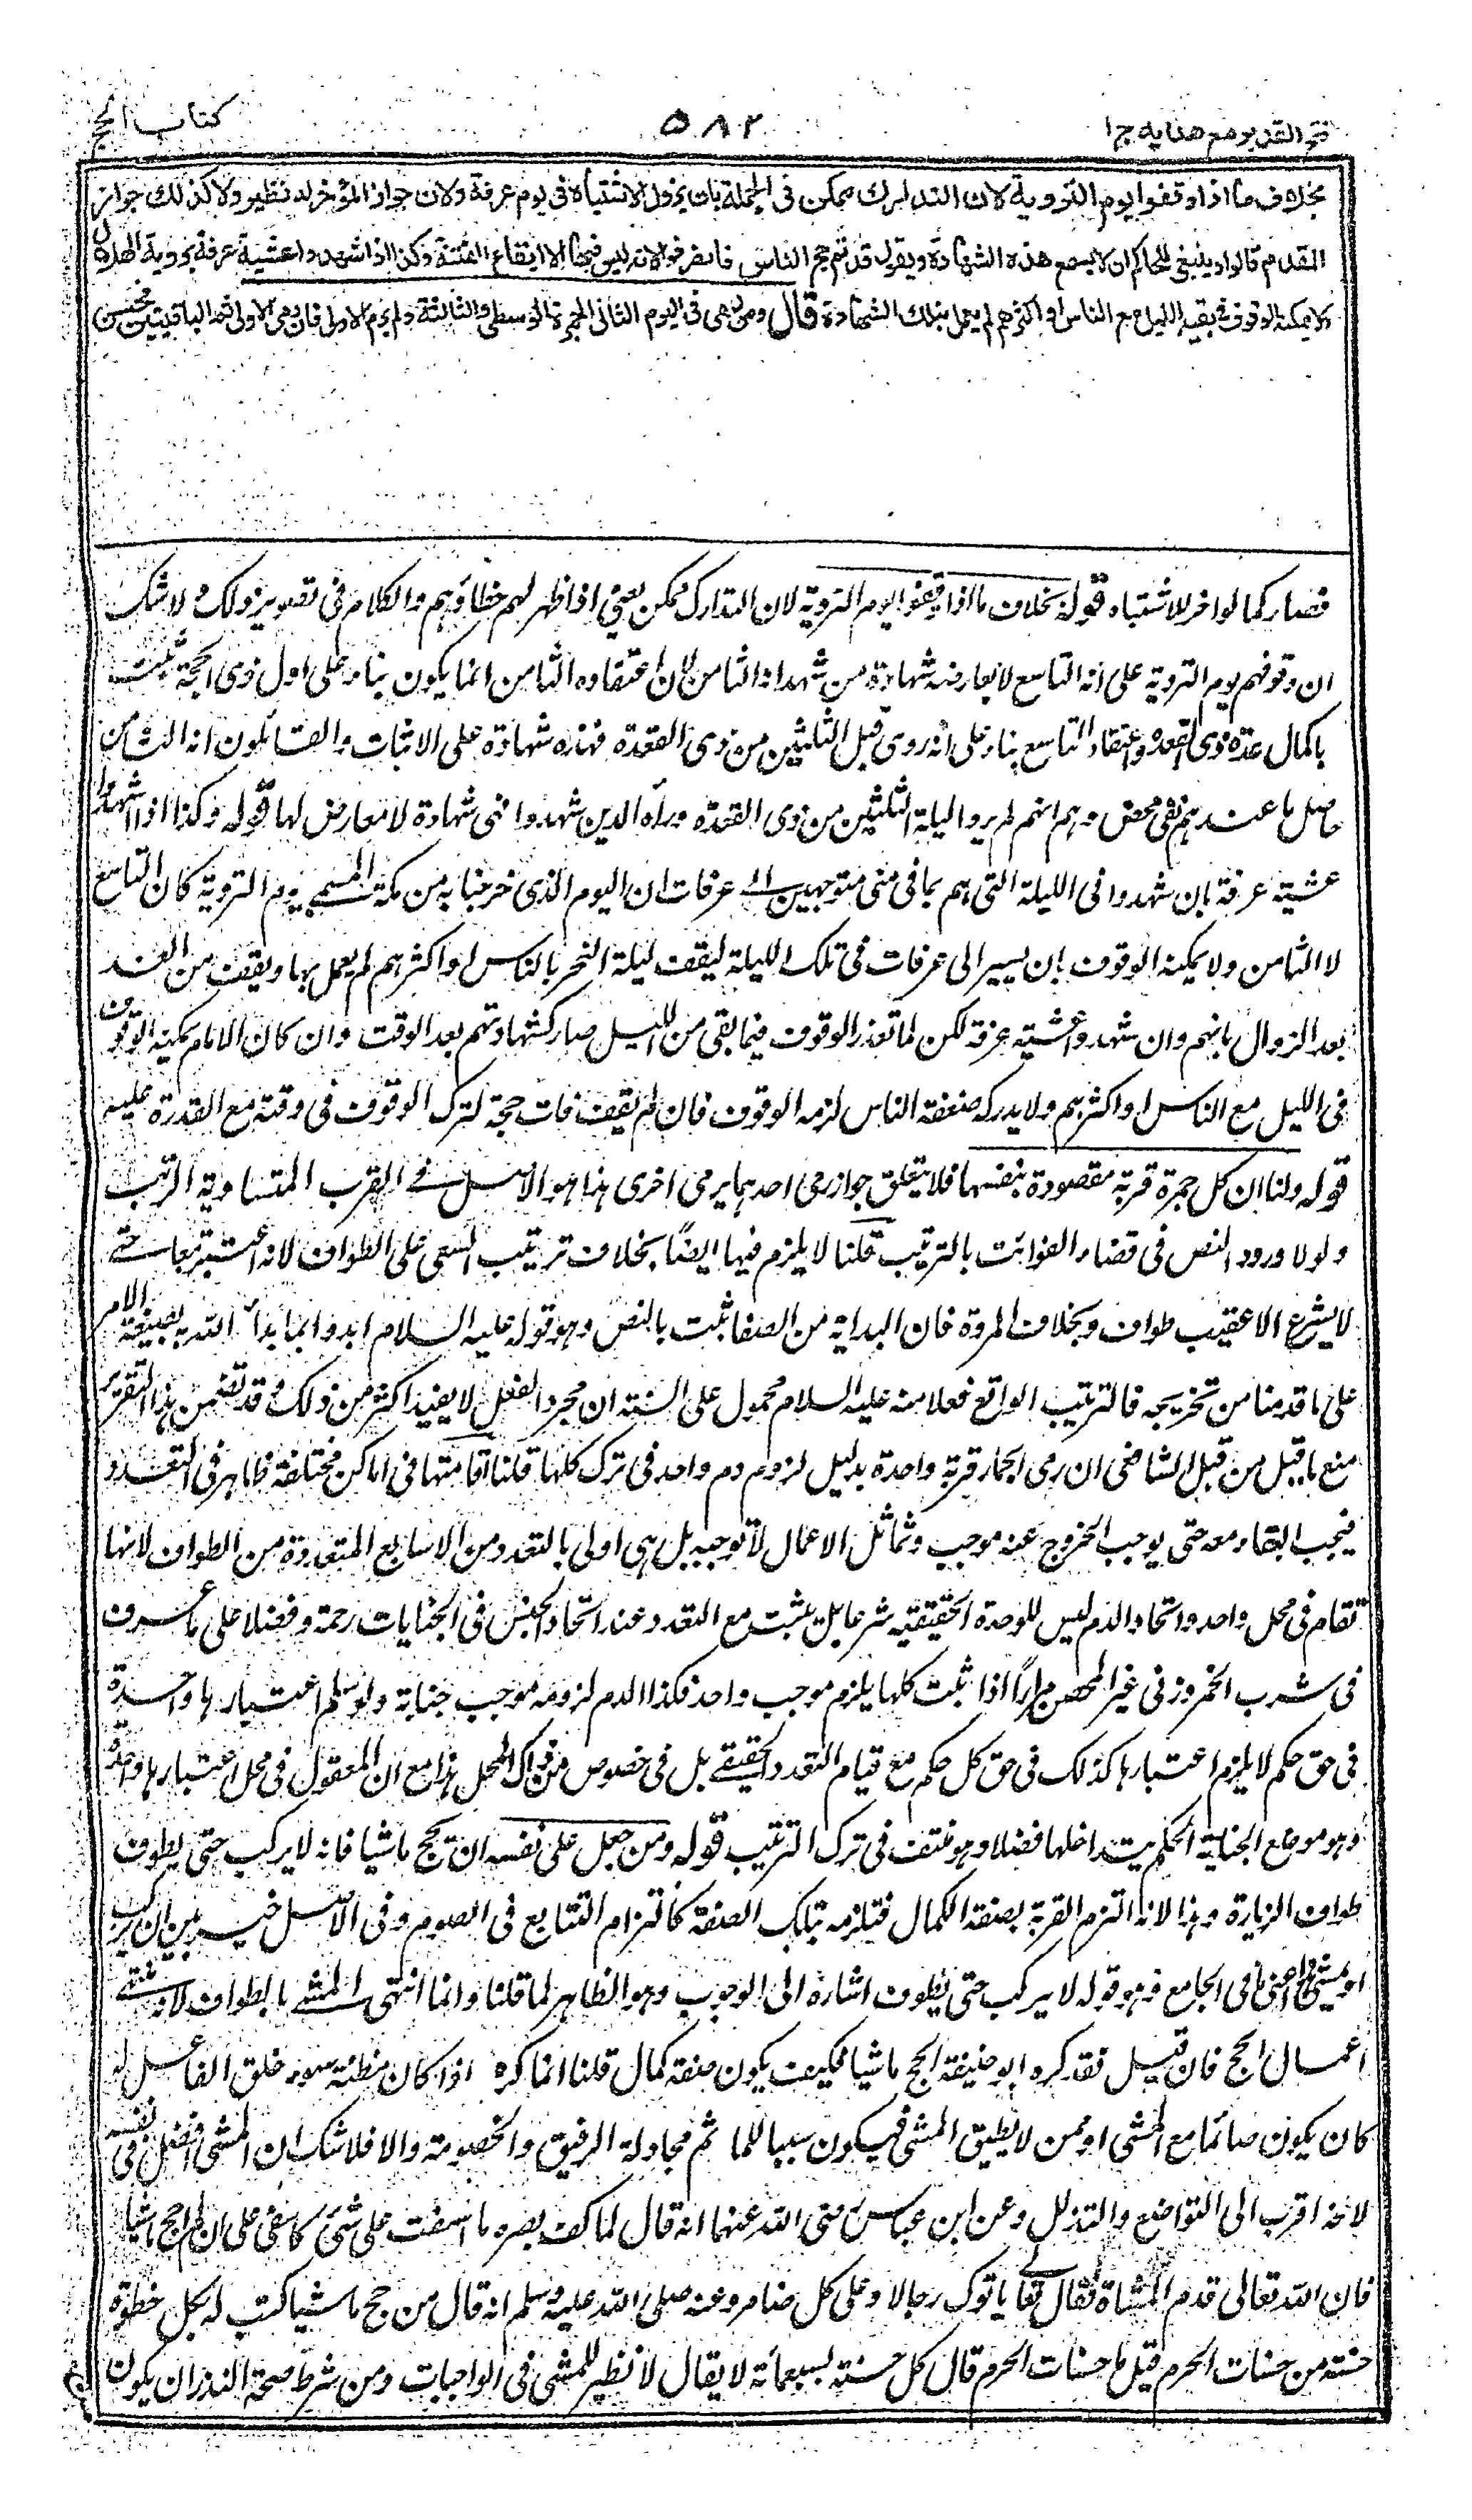 فتح القدير مع هدايه ج ١
٥٨٢
كتاب الحج
بخلاف ما اذا وقفوا يوم التروية لان التدارك ممكن فى الجملة بان يزول الاشتباه فى يوم عرفة ولان جواز المؤخر له نظير ولا كذلك جواز
المقدم قالوا وينبغى للحاكم ان لا يسمع هذه الشهادة ويقول قد تم حج الناس فانصرفوا لانه ليس فيها الا ايقاع الفتنة وكذا اذا شهدوا عشية عرفة برؤية الهلال
ولا يمكنه الوقوف فى بقية الليل مع الناس او اكثرهم لم يعمل بتلك الشهادة قال ومن رمى فى اليوم الثانى الجمرة الوسطى والثالثة ولم يرم الاولى فان رمى الاولى ثم الباقيتين فحسن
فصار كما لو اخر للاشتباه قوله بخلاف ما اذا وقفوا يوم التروية لان التدارك ممكن يعنى اذا ظهر لهم خطاؤهم والكلام فى تصوير ذلك ولا شك
ان وقوفهم يوم التروية على انه التاسع لا يعارضه شهادة من شهد انه الثامن لان اعتقاده الثامن انما يكون بناء على اول ذى الحجة ثبت
باكمال عدة ذى القعدة واعتقاد التاسع بناء على انه روى قبل الثلثين من ذى القعدة فهذه شهادة على الاثبات والقائلون انه الثامن
حاصل ما عندهم نفى محض وهم انهم لم يروا ليلة الثلثين من ذى القعدة ورآه الذين شهدوا فهى شهادة لا معارض لها قوله وكذا اذا شهدوا
عشية عرفة بان شهدوا فى الليلة التى هم بها فى منى متوجهين الى عرفات ان اليوم الذى خرجنا به من مكة المسمى بيوم التروية كان التاسع
لا الثامن ولا يمكنه الوقوف بان يسير الى عرفات فى تلك الليلة ليقف ليلة النحر بالناس او اكثرهم لم يعمل بها ويقف من الغد
بعد الزوال بانهم وان شهدوا عشية عرفة لكن لما تعذر الوقوف فيما بقى من الليل صار كشهادتهم بعد الوقت وان كان الامام يمكنه الوقوف
فى الليل مع الناس او اكثرهم ولا يدركه ضعفة الناس لزمه الوقوف فان لم يقف فات حجه لترك الوقوف فى وقته مع القدرة عليه
قوله ولنا ان كل جمرة قربة مقصودة بنفسها فلا يتعلق جواز رمى احدهما برمى اخرى هذا هو الاصل فى القرب المتساوية الرتب
ولولا ورود النص فى قضاء الفوائت بالترتيب قلنا لا يلزم فيها ايضاً بخلاف ترتيب السعى على الطواف لانه اعتبر تبعا حتى
لا يشرع الا عقيب طواف وبخلاف المروة فان البداية من الصفا ثبت بالنص وهو قوله عليه السلام ابدوا بما بدأ الله به بصيغة الامر
على ما قدمنا من تخريجه فالترتيب الواقع فعلا منه عليه السلام محمول على السنة ان مجرد الفعل لا يفيد اكثر من ذلك وقد تضمن هذا التقرير
منع ما قيل من قبل الشافعى ان رمى الجمار قربة واحدة بدليل لزوم دم واحد فى ترك كلها قلنا اقامتها فى اماكن مختلفة ظاهر فى التعدد
فيجب البقاء معه حتى يوجب الخروج عنه موجب وتماثل الاعمال لا توجبه بل هى اولى بالتعدد من الاسابيع المتعددة من الطواف لانها
تقام فى محل واحد واتحاد الدم ليس للوحدة الحقيقية شرعا بل يثبت مع التعدد عند اتحاد الجنس فى الجنايات رحمة وفضلا على ما عرف
فى شرب الخمر وزنى غير المحصن مراراً اذا ثبت كلها يلزم موجب واحد فكذا الدم لزومه موجب جناية ولو سلم اعتبارها واحدة
فى حق حكم لا يلزم اعتبارها كذلك فى حق كل حكم مع قيام التعدد الحقيقى بل فى خصوص ذلك المحل هذا مع ان المعقول فى محل اعتبارها واحدة
وهو موضع الجناية الحكم بتداخلها فضلا وهو منتف فى ترك الترتيب قوله ومن جعل على نفسه ان يحج ماشيا فانه لا يركب حتى يطوف
طواف الزيارة وهذا لانه التزم القربة بصفة الكمال فتلزمه بتلك الصفة كالتزام التتابع فى الصوم وفى الاصل خيره بين ان يركب
او يمشى فما فى الجامع وهو قوله لا يركب حتى يطوف اشارة الى الوجوب وهو الظاهر لما قلنا وانما انتهى المشى بالطواف لانه منتهى
اعمال الحج فان قيل فقد كره ابو حنيفة الحج ماشيا فكيف يكون صفة كمال قلنا انما كره اذا كان مظنة سوء خلق الفاعل له
كان يكون صائما مع المشى او ممن لا يطيق المشى فيكون سببا للماثم مجادلة الرفيق والخصومة والا فلا شك ان المشى افضل فى نفسه
لانه اقرب الى التواضع والتذلل وعن ابن عباس رضى الله عنهما انه قال لما كف بصره ما اسفت على شئ كاسفى على ان لم احج ماشيا
فان الله تعالى قدم المشاة فقال تعالى ياتوك رجالا وعلى كل ضامر وعنه صلى الله عليه وسلم انه قال من حج ماشيا كتب له بكل خطوة
حسنة من حسنات الحرم قيل ما حسنات الحرم قال كل حسنة بسبعمائة لا يقال لا نظير للمشى فى الواجبات ومن شرط صحة النذر ان يكون